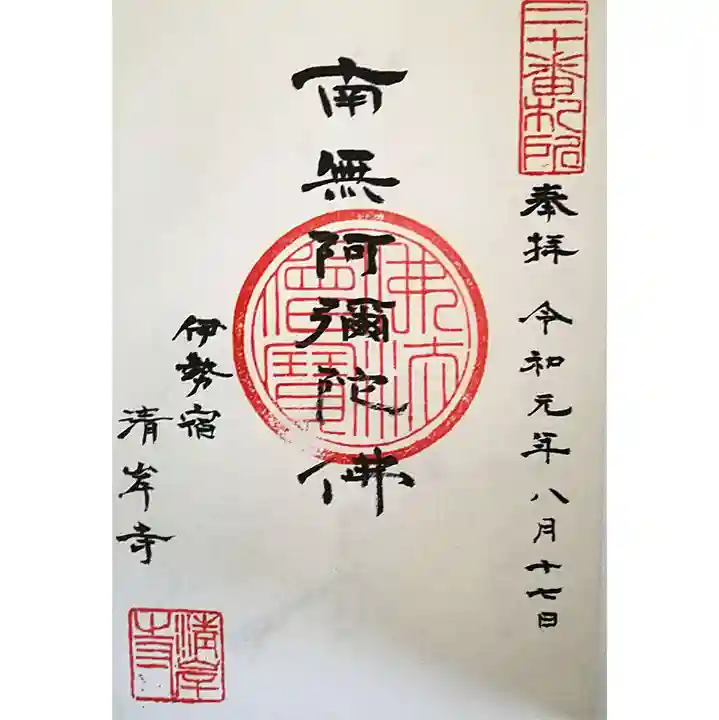 三十番札所
奉拝 令和元年八月十七日
南無阿彌陀佛
佛法僧寶
伊勢宿
清岸寺
清岸寺